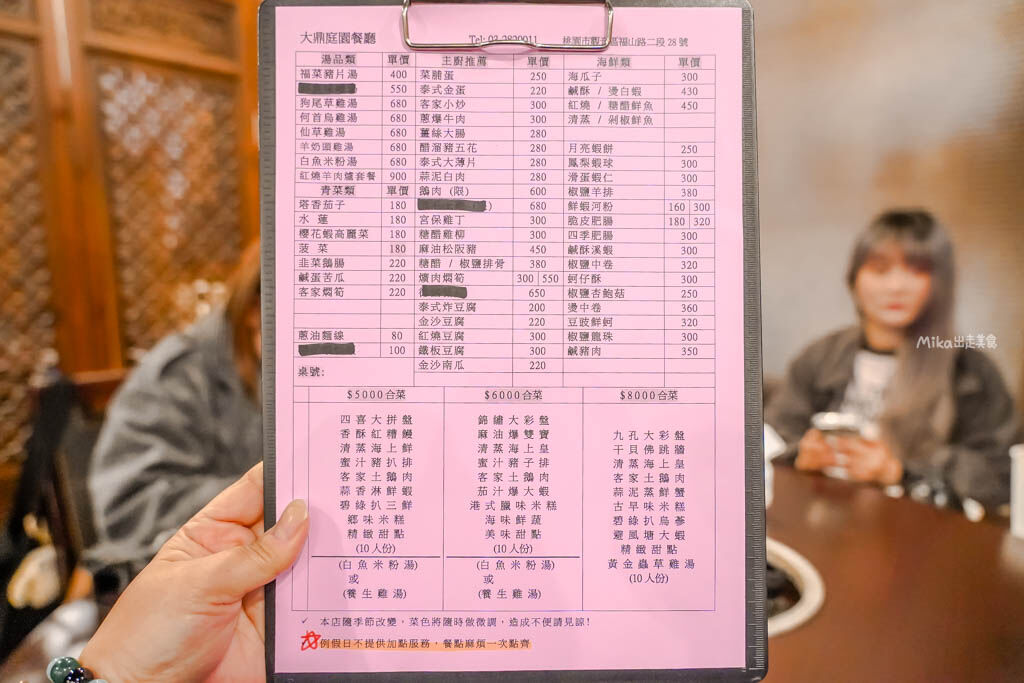 大鼎庭園餐廳 Tel: 03-2820911 桃園市觀音區福山路二段28號
湯品類 單價 主廚推薦 單價 海鮮類 單價
福菜豬片湯 400 菜脯蛋 250 海瓜子 300
550 泰式金蛋 220 鹹酥 / 燙白蝦 430
狗尾草雞湯 680 客家小炒 300 紅燒 / 糖醋鮮魚 450
何首烏雞湯 680 蔥爆牛肉 300 清蒸 / 剁椒鮮魚
仙草雞湯 680 薑絲大腸 280
羊奶頭雞湯 680 醋溜豬五花 280 月亮蝦餅 250
白魚米粉湯 680 泰式大薄片 280 鳳梨蝦球 300
紅燒羊肉爐套餐 900 蒜泥白肉 280 滑蛋蝦仁 300
青菜類 單價 鵝肉 (限) 600 椒鹽羊排 380
塔香茄子 180 680 鮮蝦河粉 160 300
水蓮 180 宮保雞丁 300 脆皮肥腸 180 320
櫻花蝦高麗菜 180 糖醋雞柳 300 四季肥腸 300
菠菜 180 麻油松阪豬 450 鹹酥溪蝦 300
韭菜鵝腸 220 糖醋 / 椒鹽排骨 380 椒鹽中卷 320
鹹蛋苦瓜 220 爌肉燜筍 300 550 蚵仔酥 300
客家燜筍 220 650 椒鹽杏鮑菇 250
泰式炸豆腐 200 燙中卷 360
金沙豆腐 220 豆豉鮮蚵 320
蔥油麵線 80 紅燒豆腐 300 椒鹽龍珠 300
100 鐵板豆腐 300 鹹豬肉 350
桌號: 金沙南瓜 220
$5000合菜
四喜大拼盤
香酥紅糟鰻
清蒸海上鮮
蜜汁豬扒排
客家土鵝肉
蒜香淋鮮蝦
碧綠扒三鮮
鄉味米糕
精緻甜點
(10人份)
(白魚米粉湯)
或
(養生雞湯)
$6000合菜
錦繡大彩盤
麻油爆雙寶
清蒸海上皇
蜜汁豬子排
客家土鵝肉
茄汁爆大蝦
港式臘味米糕
海味鮮蔬
美味甜點
(10人份)
(白魚米粉湯)
或
(養生雞湯)
$8000合菜
九孔大彩盤
干貝佛跳牆
清蒸海上皇
客家土鵝肉
蒜泥蒸鮮蟹
古早味米糕
碧綠扒烏蔘
避風塘大蝦
精緻甜點
黃金蟲草雞湯
(10人份)
✓ 本店隨季節改變，菜色將隨時做微調，造成不便請見諒!
例假日不提供加點服務，餐點麻煩一次點齊
Mika出走美食